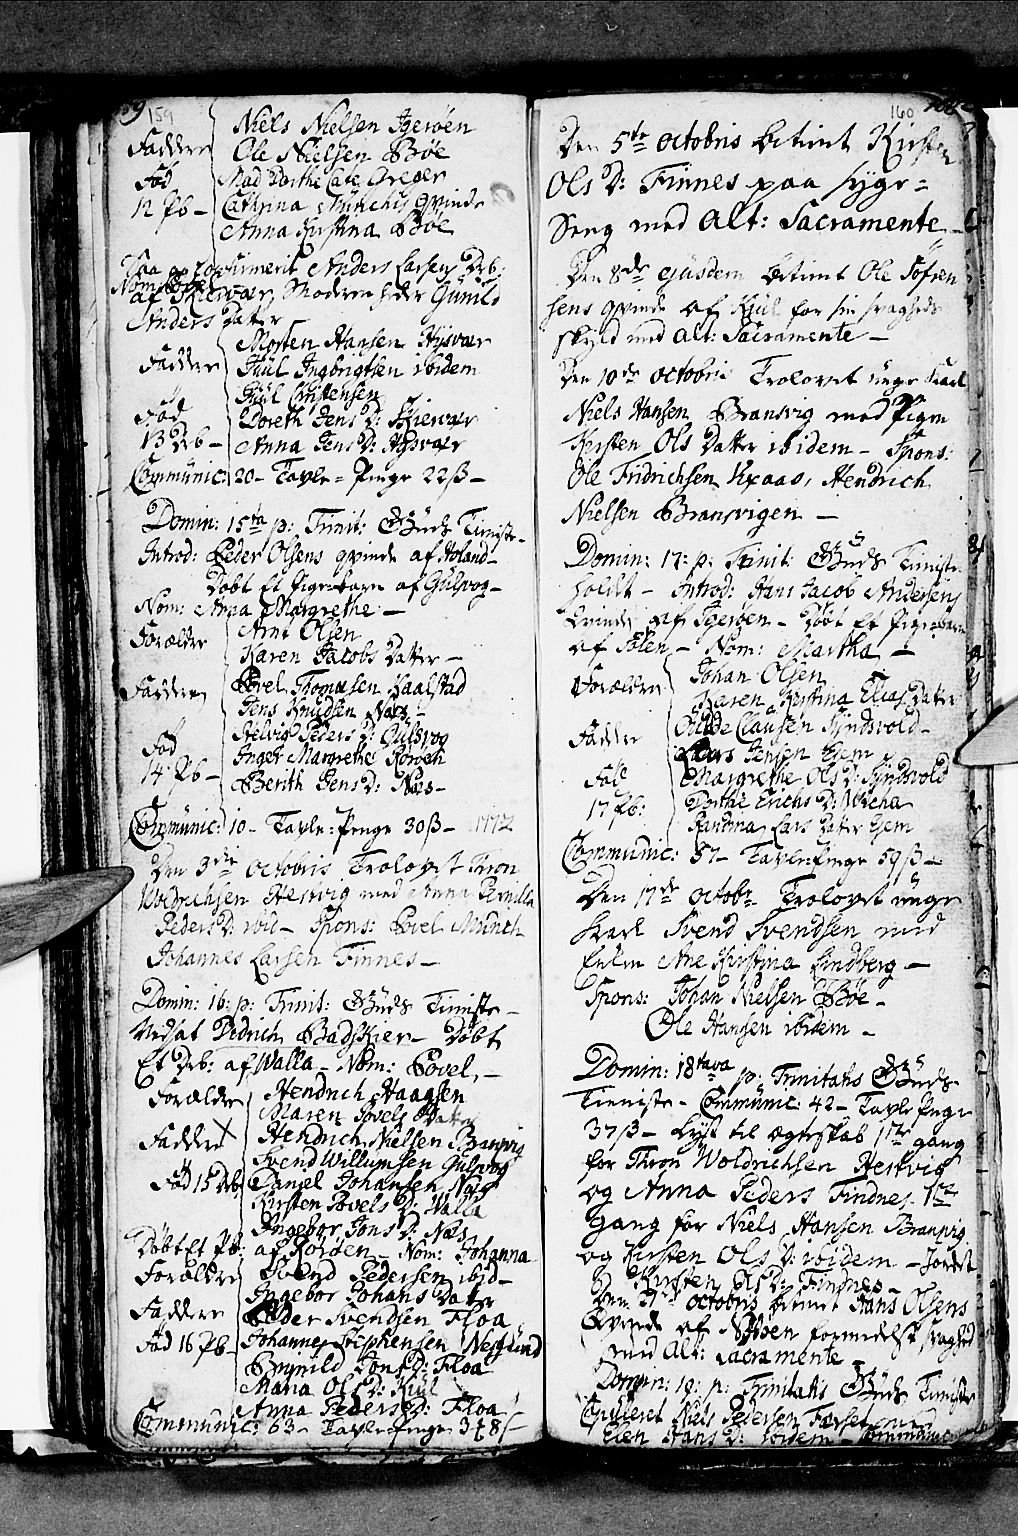 159
Niels Nielsen Igerøen
Faddere Ole Nielsen Bøe
Fød Mad Dorthe Cate Greger
12 Pb - Cathrina Münchs qvinde
Anna Kirstina Bøe
Confirmerit Anders Larsens Drb:
Nom: Povel
af Skierver, Moderen heder Gunild
Anders Datter
Morten Hansen Hysvær
Faddere Juul Ingbrigtsen ibidem
Juul Christensen
Fød Doreth Jens D: Skiervær
13 Drb - Anna Jens D: Hysvær
Communic: 20 - Tavle-Penge 22 ß -
Domin: 15ta p: Trinit: Guds Tieniste -
Introd: Peder Olsens qvinde af Høland -
Døbt Et Pigebarn af Gulsvog -
Nom: Anna Margrethe -
Forældre Arnt Olsen
Karen Jacobs Datter -
Faddere Povel Thomesen Kaalstad
Jens Knudsen Næs -
Helvig Peders D: Gulsvog
Fød Inger Margrethe Rorven
14 Pb - Berith Jens D: Næs -
Communic: 10 - Tavle-Penge 30 ß - 1772
Den 3die Octobris Trolovet Tron
Woldrichsen Hestvig med Anna Pernilla
Peders D ibid - Spons: Povel Münch
Johannes Larsen Finnes -
Domin: 16: p: Trinit: Guds Tieniste -
Vedsat Didrich Badskier - Døbt
Et Drb: af Walla - Nom: Povel, -
Forældre Hendrich Haagsen
Maren Povels Datter
Faddere X Hendrich Nielsen Bransvig
Svend Willumsen Gulsvog
Fød 15 Drb Daniel Johansen Næs
Kirsten Povels D: Walla
Ingebor Jons D: Næs
Døbt Et Pb: af Rorden - Nom: Johanna
Forældre Svend Pedersen ibid -
Ingebor Johans Datter
Faddere Peder Svendsen Floa
Fød 16 Pb - Johannes Stephensen Nesslund
Brynild Jons D: Floa
Maria Ols D: Kiul
Anna Peders D: Floa
Communic: 63 - Tavle-Penge 378 ß
160
Den 5te Octobris betient Kirsten
Ols D: Finnes paa syge-
Seng med Alt: Sacramente -
Den 8de ejusdem betient Ole Tofsen
sens qvinde af Kjul for sin svagheds
skyld med Alt: Sacramente -
Den 10de Octobris Trolovet unge Karl
Niels Hansen Bransvig med Pigen
Kirsten Ols Datter ibidem - Spons:
Ole Fridrichsen Hendrich
Nielsen Bransvigen -
Domin: 17: p: Trinit: Guds Tieniste
holdt - Introd: Hans Jacob Andersens
Qvinde af Igerøen - Døbt Et Pigebarn
af Tolen - Nom: Martha -
Forældre Johan Olsen
Karen Kirstina Elias Datter
Faddere Ovide Clausen Tyndsvold -
Lars Jensen Esem
Fød Margrethe Ols D: Tyndsvold
17 Pb: Dorthe Erichs D:
Randina Lars Datter Esem
Communic: 57 - Tavle-Penge 59 ß -
Den 17de Octobr Trolovet unge
Karl Svend Svendsen med
Ane Kirstina Lindberg -
Spons: Johan Nielsen Bøe -
Ole Hansen ibidem -
Domin: 18tava p: Trinitatis Guds
Tieniste - Communic: 42 - Tavle Penge
37 ß - Lyst til Ægteskab 1ste gang
for Thron Woldrichsen Hestvig
og Anna Peders Findnes 1te
gang for Niels Hansen Bransvig
og Kirsten Ols D: ibidem - Jordet
Kirsten Ols D: Finnes -
Den 21de Octobris betient Hans Olsens
Qvinde af formedelst svaghed
med Alt: Sacramente -
Domin: 19: p: Trinitatis Guds Tieniste
Copuleret Niels Pedersen med
Elen Hans D: ibidem - Communic